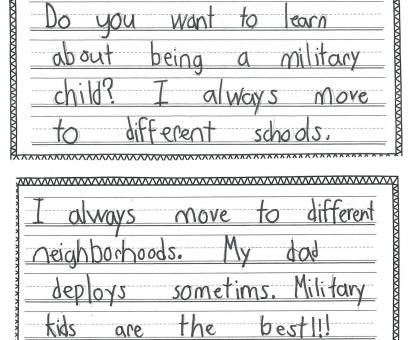 Do you want to learn
about being a military
child? I always move
to different schools.
I always move to different
neighborhoods. My dad
deploys sometims. Military
kids are the best!!!